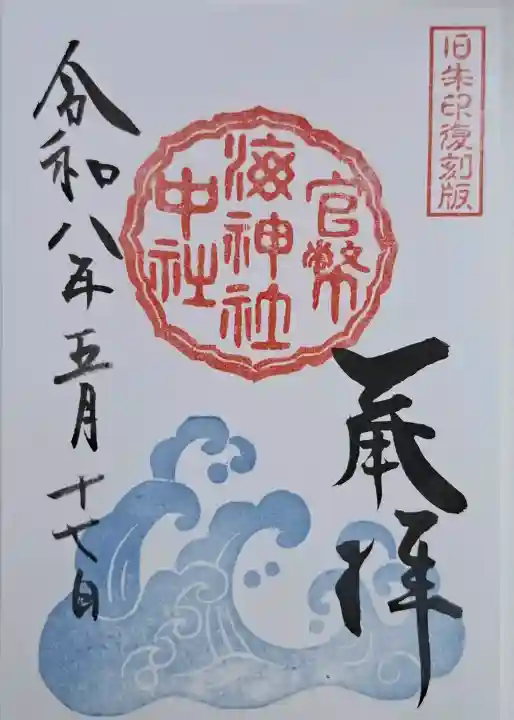 旧朱印復刻版
奉拝
官幣
中社
海神社
令和八年五月十七日